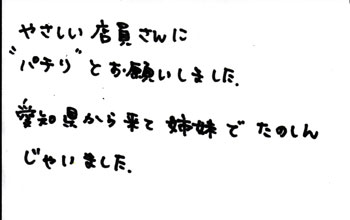 やさしい店員さんに
"パチリ"とお願いしました.
愛知県から来て姉妹でたのしん
じゃいました.